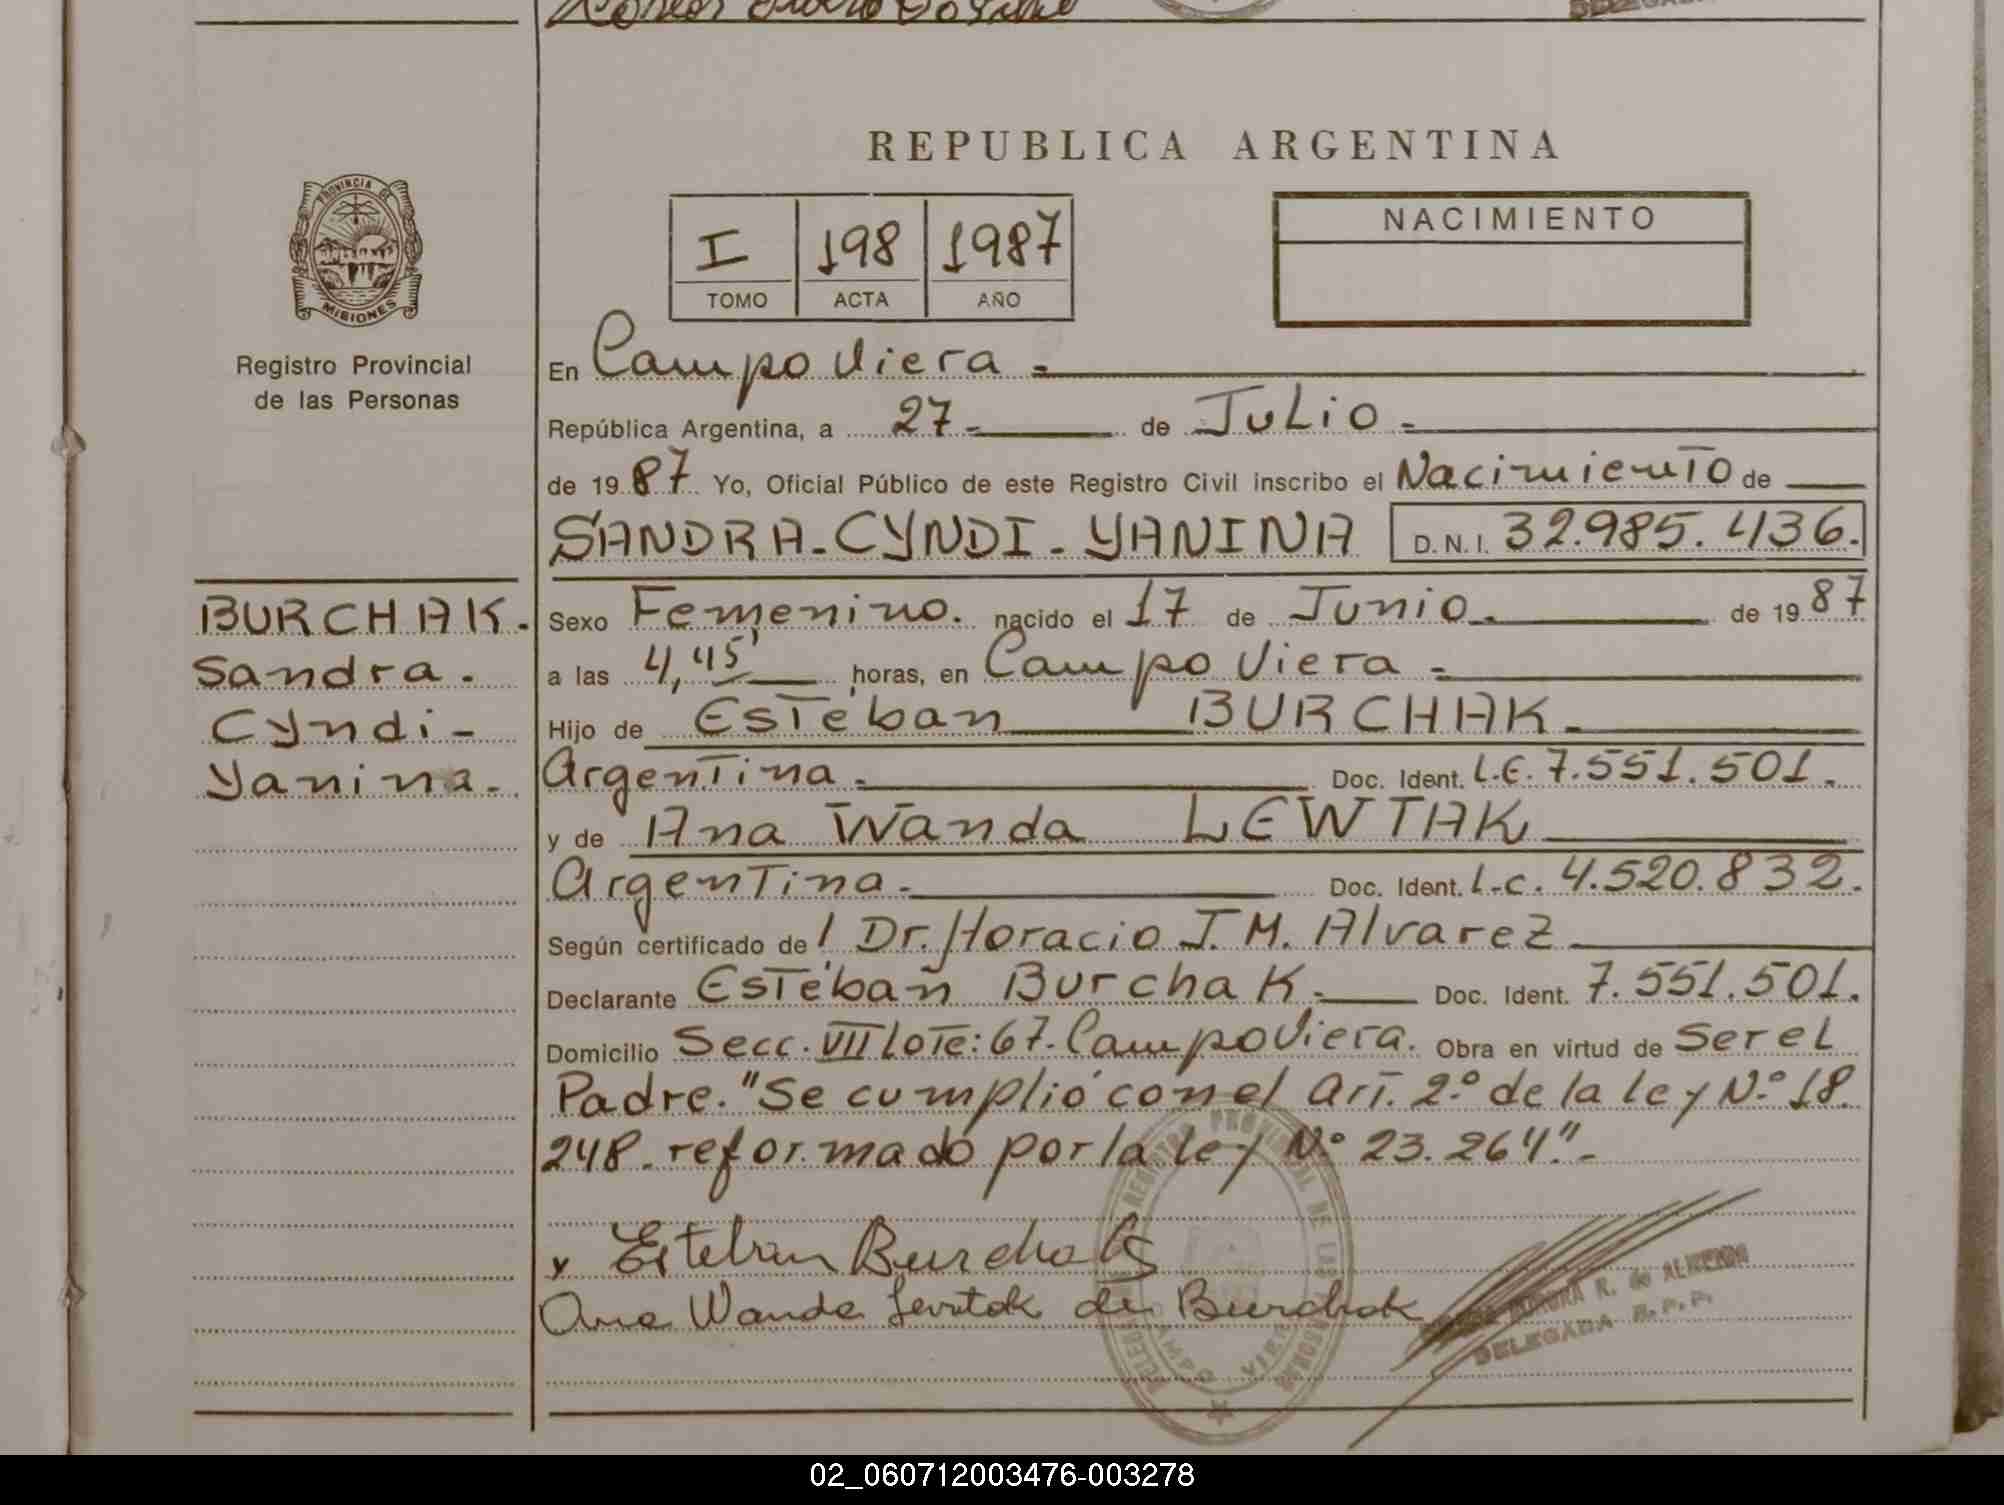 REPUBLICA ARGENTINA
PROVINCIA DE
MISIONES
Registro Provincial
de las Personas
I 198 1987
TOMO ACTA AÑO
NACIMIENTO
En Campo Viera.-
República Argentina, a 27.- de Julio.-
de 1987 Yo, Oficial Público de este Registro Civil inscribo el Nacimiento de
SANDRA-CYNDI-YANINA D.N.I. 32.985.436.
BURCHAK.
Sandra.
Cyndi-
Yanina.
Sexo Femenino. nacido el 17 de Junio.- de 1987
a las 4,45' horas, en Campo Viera.-
Hijo de Esteban BURCHAK.-
Argentina.- Doc. Ident. L.E. 7.551.501.
y de Ana Wanda LEWTAK
Argentina.- Doc. Ident. L.C. 4.520.832.
Según certificado de Dr. Horacio J. M. Alvarez
Declarante Esteban Burchak. Doc. Ident. 7.551.501.
Domicilio Secc. VII Lote: 67. Campo Viera. Obra en virtud de Ser el
Padre. "Se cumplió con el Art. 2º de la ley Nº 18.
248. reformado por la ley Nº 23.264".-
x Esteban Burchak
Ana Wanda Lewtak de Burchak
REGISTRO PROVINCIAL DE LAS PERSONAS
CAMPO VIERA
R. de ALMEIDA
DELEGADA R.P.P.
02_060712003476-003278